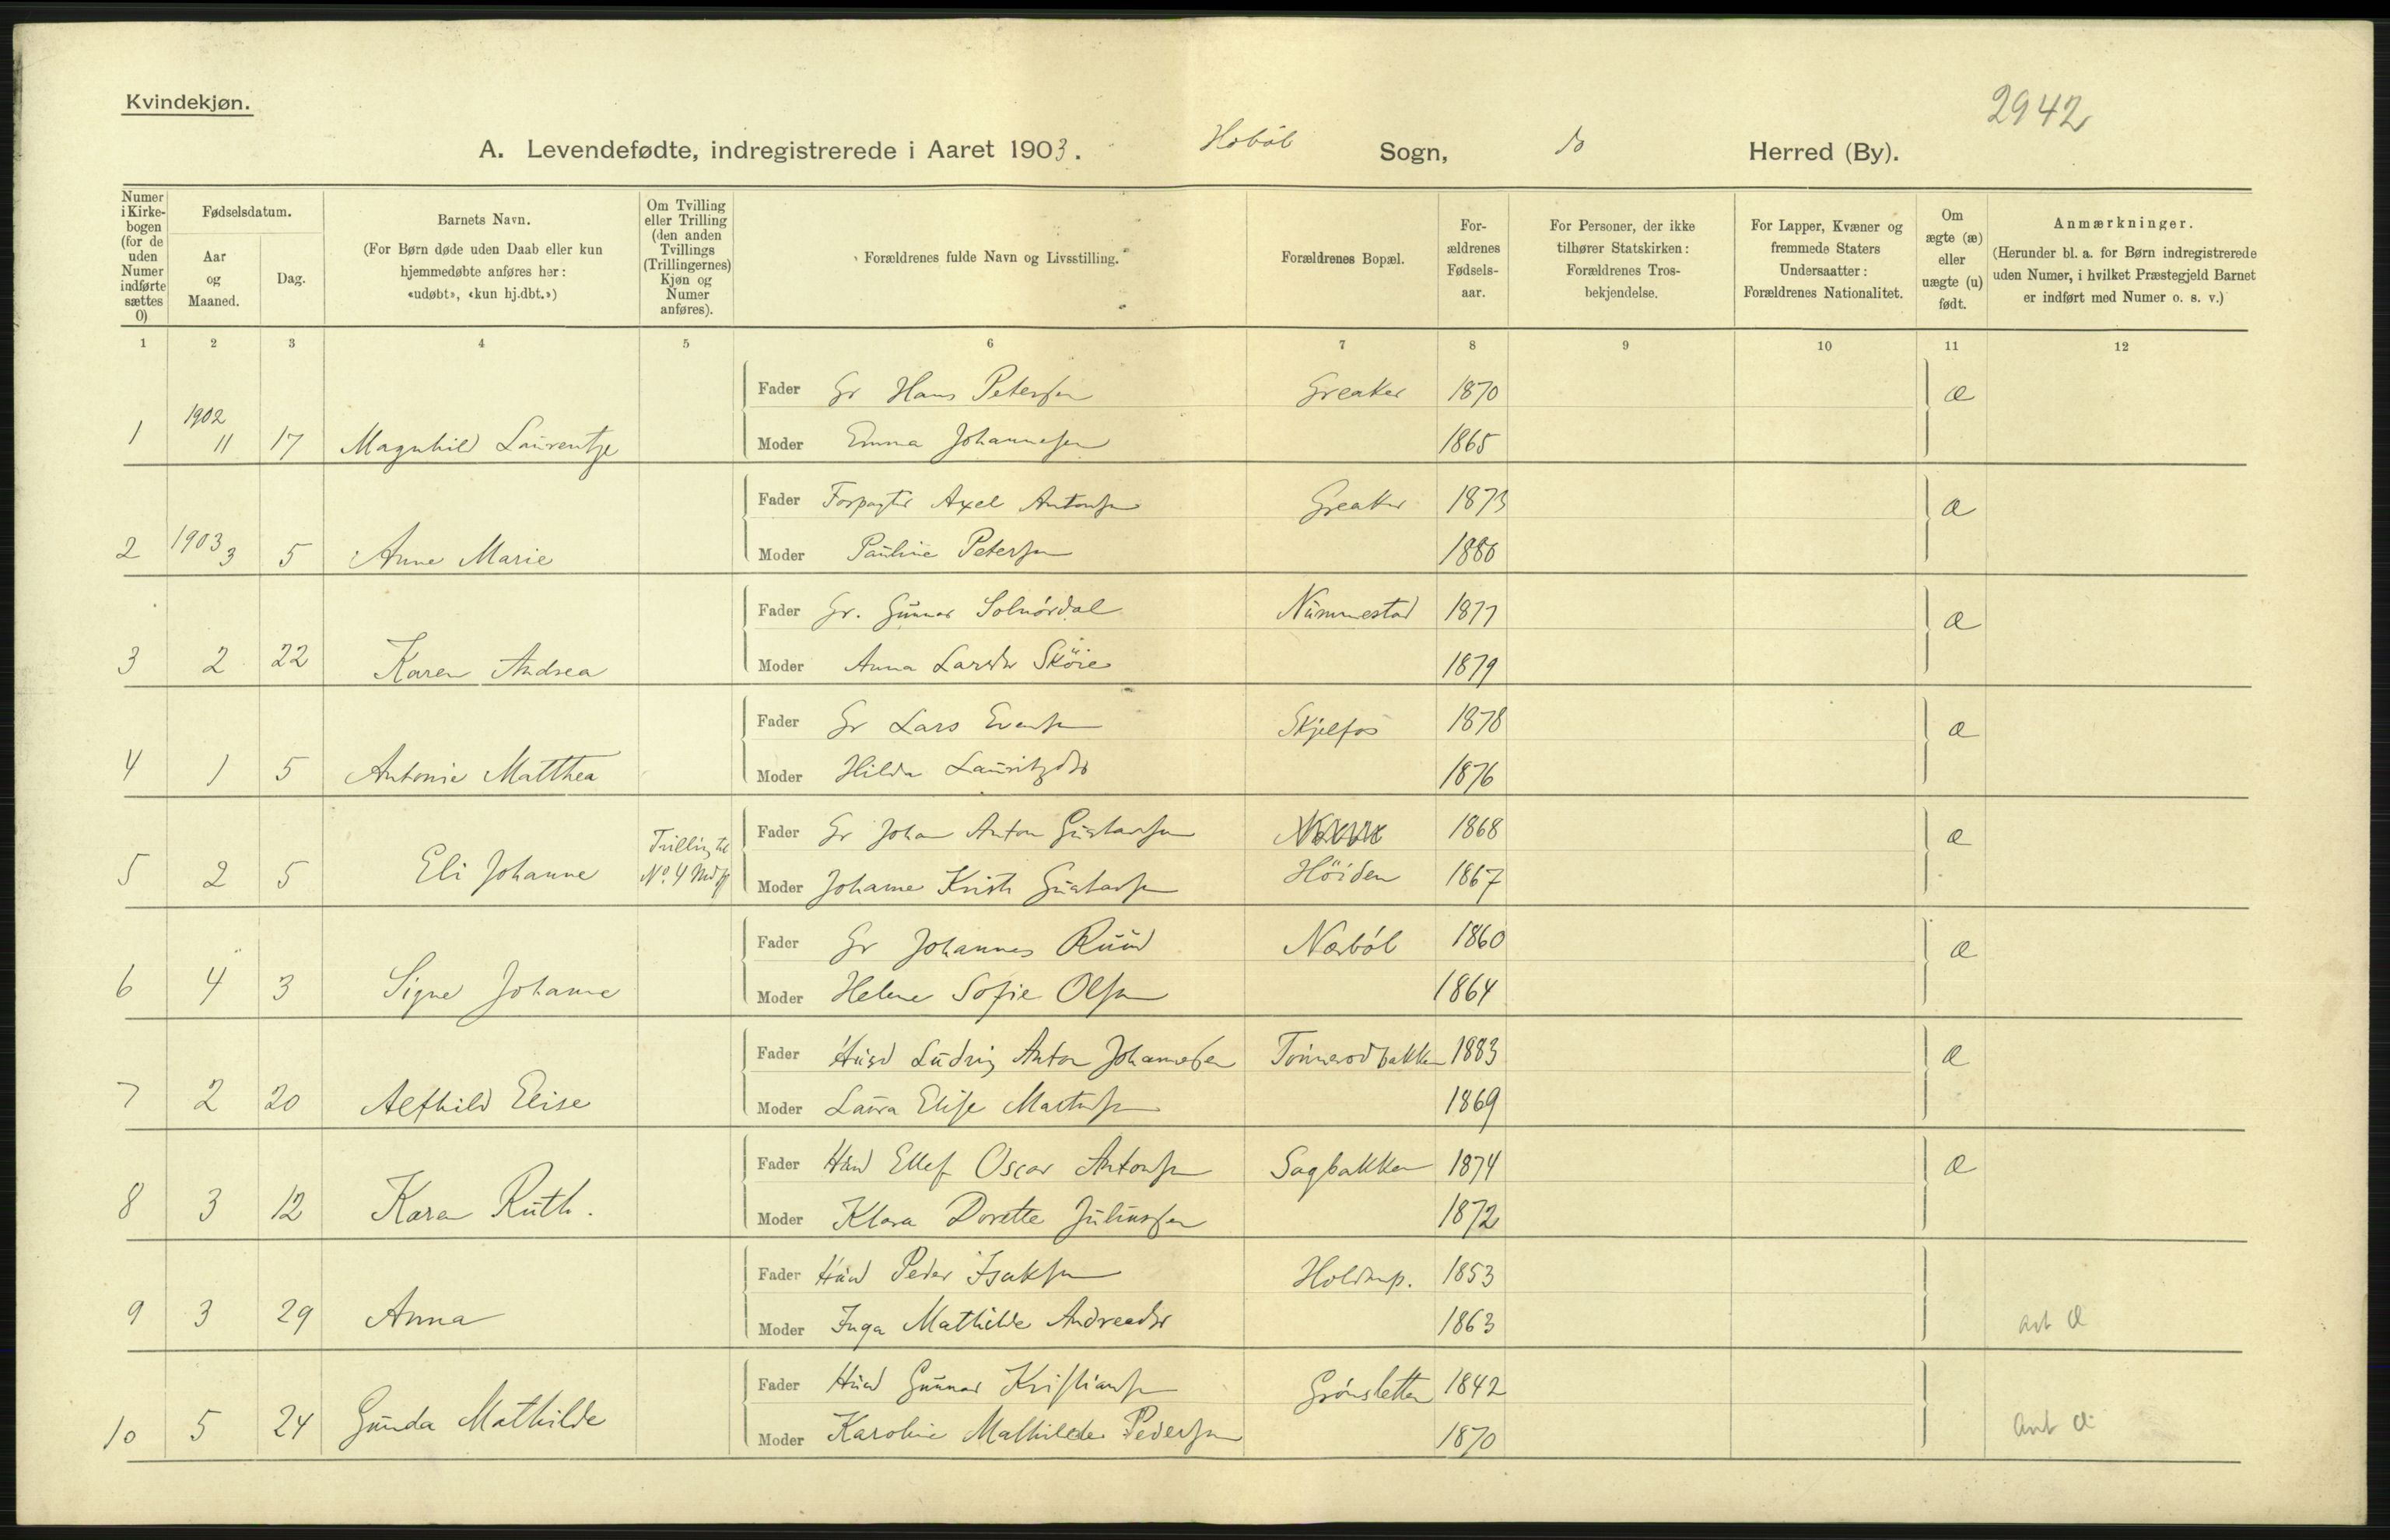 Kvindekjøn.
2942
A. Levendefødte, indregistrerede i Aaret 1903. Hobøl Sogn, do Herred (By).
Numer i Kirke-bogen (for de uden Numer indførte sættes 0)
Fødselsdatum.
Aar og Maaned.
Dag.
Barnets Navn.
(For Børn døde uden Daab eller kun hjemmedøbte anføres her: «udøbt», «kun hj.dbt.»)
Om Tvilling eller Trilling (den anden Tvillings (Trillingernes) Kjøn og Numer anføres).
Forældrenes fulde Navn og Livsstilling.
Forældrenes Bopæl.
For-ældrenes Fødsels-aar.
For Personer, der ikke tilhører Statskirken: Forældrenes Tros-bekjendelse.
For Lapper, Kvæner og fremmede Staters Undersaatter: Forældrenes Nationalitet.
Om ægte (æ) eller uægte (u) født.
Anmærkninger.
(Herunder bl. a. for Børn indregistrerede uden Numer, i hvilket Præstegjeld Barnet er indført med Numer o. s. v.)
1 2 3 4 5 6 7 8 9 10 11 12
Fader Gr Hans Petersen Greaker 1870 æ
1 1902 11 17 Magnhild Laurentze Moder Emma Johannesen 1865
Fader Forpagter Axel Antonsen Greaker 1873 æ
2 1903 3 5 Anne Marie Moder Pauline Petersen 1880
Fader Gr. Gunnar Solnørdal Nummestad 1877 æ
3 2 22 Karen Andrea Moder Anna Larsdr Sköie 1879
Fader Gr Lars Evensen Skjelfos 1878 æ
4 1 5 Antonie Matthea Moder Hilda Lauritzdtr 1876
Fader Gr Johan Anton Gustavsen 1868 æ
5 2 5 Eli Johanne Trilling til No. 4 Mdkj Moder Johanne Krist. Gustavsen Höiden 1867
Fader Gr Johannes Ruud Nærbøl 1860 æ
6 4 3 Signe Johanne Moder Helene Sofie Olsen 1864
Fader Husd Ludvig Anton Johannesen Tönnerødbakken 1883 æ
7 2 20 Alfhild Elise Moder Laura Elise Martinsen 1869
Fader Husd Ellef Oscar Antonsen Sagbakken 1874 æ
8 3 12 Karen Ruth. Moder Klara Dorette Juliussen 1872
Fader Husd Peder Isaksen Holdmp. 1853
9 3 29 Anna Moder Inga Mathilde Andreadtr 1863 ant æ
Fader Husd Gunnar Kristiansen Grønsletten 1842
10 5 24 Gunda Mathilde Moder Karoline Mathilde Pedersen 1870 ant æ